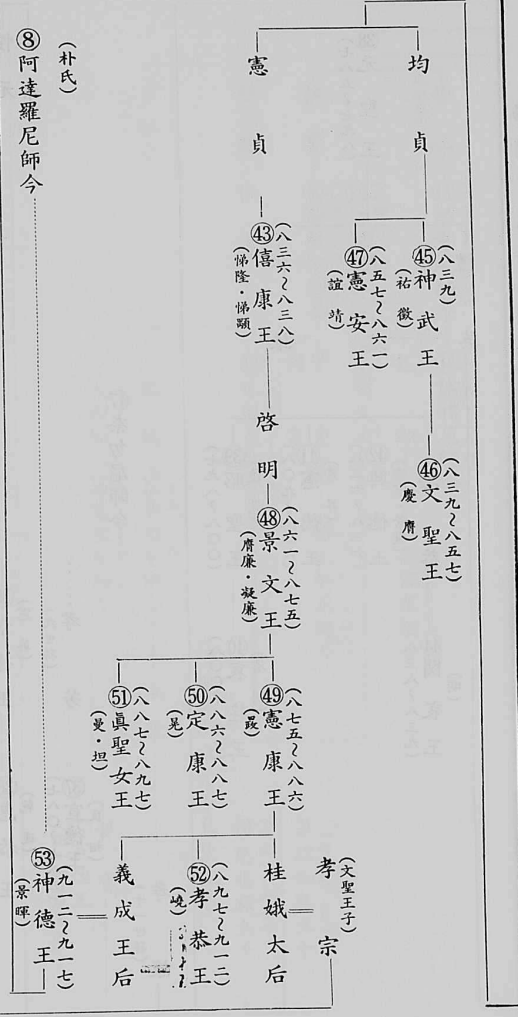 均貞
(八三九)
㊺神武王
(祐徵)
(八三九~八五七)
㊻文聖王
(慶膺)
(八五七~八六一)
㊼憲安王
(誼靖)
憲貞
(八三六~八三八)
㊸僖康王
(悌隆・悌顒)
啓明
(八六一~八七五)
㊽景文王
(膺廉・凝廉)
(八七五~八八六)
㊾憲康王
(晸)
(八八六~八八七)
㊿定康王
(晃)
(八八七~八九七)
51眞聖女王
(曼・坦)
(文聖王子)
孝宗
桂娥太后
(八九七~九一二)
52孝恭王
(嶢)
義成王后
(九一二~九一七)
53神德王
(景暉)
(朴氏)
⑧阿達羅尼師今